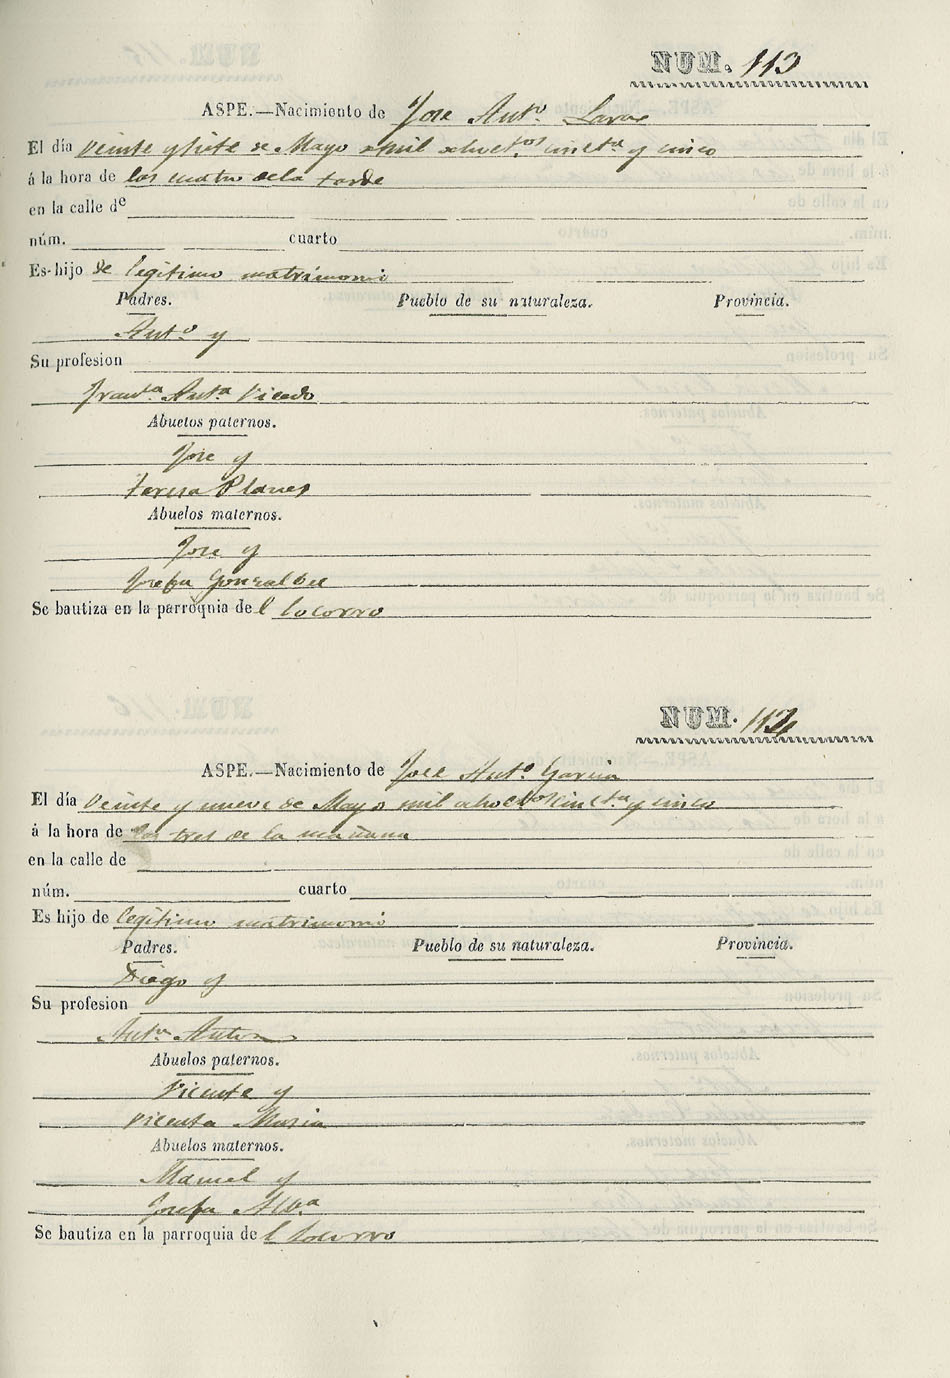 NUM. 113
ASPE.—Nacimiento de Jose Antº
El día veinte y siete de Mayo mil ochoctos cincta y cinco
á la hora de las cuatro de la tarde
en la calle de
núm. cuarto
Es hijo de legitimo matrimoni
Padres. Pueblo de su naturaleza. Provincia.
Antº y
Su profesion
Francª Antª Vicedo
Abuelos paternos.
Jose y
Teresa Planes
Abuelos maternos.
Jose y
Josefa Gonzalbez
Se bautiza en la parroquia del Socorro
NUM. 114
ASPE.—Nacimiento de Jose Antº Garcia
El día veinte y nueve de Mayo mil ochoctos cincta y cinco
á la hora de las tres de la mañana
en la calle de
núm. cuarto
Es hijo de legitimo matrimoni
Padres. Pueblo de su naturaleza. Provincia.
Diego y
Su profesion
Antª Anton
Abuelos paternos.
Vicente y
Vicenta Maria
Abuelos maternos.
Manuel y
Josefa
Se bautiza en la parroquia del Socorro